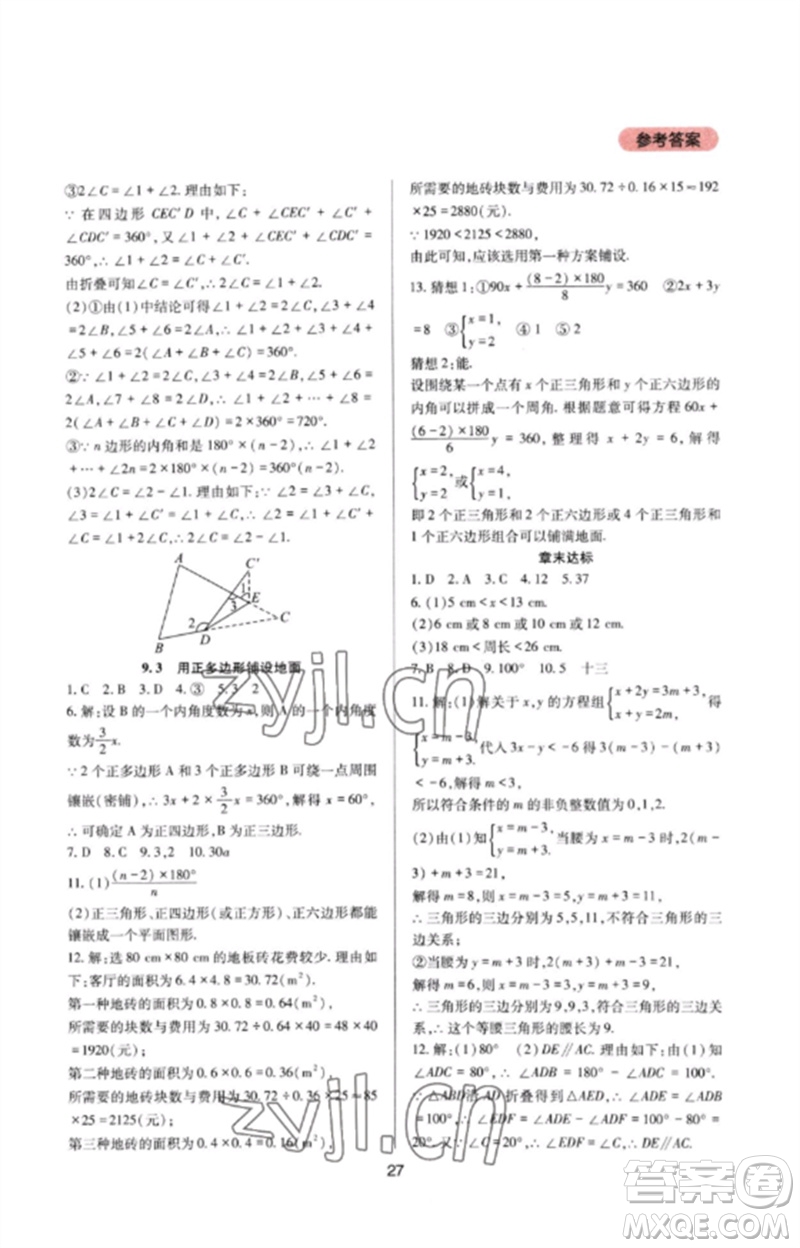 参考答案
③2∠C=∠1+∠2.理由如下:
∵在四边形CEC′D中,∠C+∠CEC′+∠C′+
∠CDC′=360°,又∠1+∠2+∠CEC′+∠CDC′=
360°,∴∠1+∠2=∠C+∠C′.
由折叠可知∠C=∠C′,∴2∠C=∠1+∠2.
(2)①由(1)中结论可得∠1+∠2=2∠C,∠3+∠4
=2∠B,∠5+∠6=2∠A,∴∠1+∠2+∠3+∠4+
∠5+∠6=2(∠A+∠B+∠C)=360°.
②∵∠1+∠2+∠3+∠4+∠5+∠6+∠7+∠8=
2(∠A+∠B+∠C+∠D)=2×360°=720°.
③∵n边形的内角和是180°×(n-2),∴∠1+∠2
+⋯+∠2n=2×180°×(n-2)=360°(n-2).
(3)2∠C=∠2-∠1.理由如下:∵∠2=∠3+∠C,
∠3=∠1+∠C′=∠1+∠C,∴∠2=∠1+∠C+∠C
=∠1+2∠C,∴2∠C=∠2-∠1.
A C′ 1 3 E C 2 D B
9.3 用正多边形铺设地面
1.C 2.B 3.D 4.③ 5.3 2
6.解:设B的一个内角度数为x,则A的一个内角度
数为3/2x.
∵2个正多边形A和3个正多边形B可绕一点周围
镶嵌(密铺),∴3x+2×3/2x=360°,解得x=60°,
∴可确定A为正四边形,B为正三边形.
7.D 8.C 9.3,2 10.30a
11.(1)(n-2)×180°/n
(2)正三角形、正四边形(或正方形)、正六边形都能
镶嵌成一个平面图形.
12.解:选80 cm×80 cm的地板砖花费较少.理由如
下:客厅的面积为6.4×4.8=30.72(m²),
第一种地砖的面积为0.8×0.8=0.64(m²),
所需要的块数与费用为30.72÷0.64=48,48×40
=1920(元);
第二种地砖的面积为0.6×0.6=0.36(m²),
所需要的地砖块数与费用为30.72÷0.36≈85,85
×25=2125(元);
第三种地砖的面积为0.4×0.4=0.16(m²),
所需要的地砖块数与费用为30.72÷0.16×15=192
×25=2880(元).
∵1920<2125<2880,
由此可知,应该选用第一种方案铺设.
13.猜想1:①90x+(8-2)×180/8 y=360 ②2x+3y
=8 ③{x=1, y=2 ④1 ⑤2
猜想2:能.
设围绕某一个点有x个正三角形和y个正六边形的
内角可以拼成一个周角.根据题意可得方程60x+
(6-2)×180/6 y=360,整理得x+2y=6,解得
{x=2, y=2 或{x=4, y=1.
即2个正三角形和2个正六边形或4个正三角形和
1个正六边形组合可以铺满地面.
章末达标
1.D 2.A 3.C 4.12 5.37
6.(1)5 cm<x<13 cm.
(2)6 cm或8 cm或10 cm或12 cm.
(3)18 cm<周长<26 cm.
7.B 8.D 9.100° 10.5 十三
11.解:(1)解关于x,y的方程组{x+2y=3m+3, x+y=2m, 得
{x=m-3, y=m+3.代人3x-y<-6得3(m-3)-(m+3)
<-6,
所以符合条件的m的非负整数值为0,1,2.
(2)由(1)知{x=m-3, y=m+3.当腰为x=m-3时,2(m-
3)+m+3=21,
解得m=8,则x=m-3=5,y=m+3=11,
∴三角形的三边分别为5,5,11,不符合三角形的三
边关系;
②当腰为y=m+3时,2(m+3)+m-3=21,
解得m=6,则x=m-3=3,y=m+3=9,
∴三角形的三边分别为9,9,3,符合三角形的三边关
系,∴这个等腰三角形的腰长为9.
12.解:(1)80° (2)DE∥AC.理由如下:由(1)知
∠ADC=80°,∴∠ADB=180°-∠ADC=100°.
∵△ABD沿AD折叠得到△AED,∴∠ADE=∠ADB
=100°,∴∠EDF=∠ADE-∠ADF=100°-80°=
20°.又∵∠C=20°,∴∠EDF=∠C,∴DE∥AC.
27
zyjl.cn
zyjl.cn
答案圈
MXQE.COM